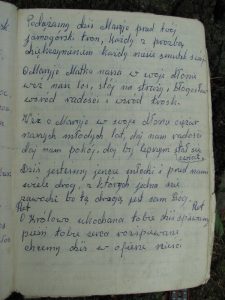 Podążamy dziś Maryjo przed twój
jamogórski tron, każdy z prośbą
dziękczynieniem każdy niesie
O Maryjo Matko nasza w swoje dłonie
weź nasz los, stój na straży i błogosław
wśród radości i wśród trosk.
Weź o Maryjo w swoje dłonie ciężar
naszych młodych lat, daj nam radość
daj nam pokój, daj by lepszym stał się
świat
Dziś jesteśmy jeszcze młodzi i przed nami
wiele dróg, z których jedna nie
zawodzi bo tą drogą jest sam Bóg.
Ref Ref
O Królowo ukochana tobie dziś śpiewamy
pieśń tobie serca rozśpiewane
chcemy dziś w ofierze nieść.